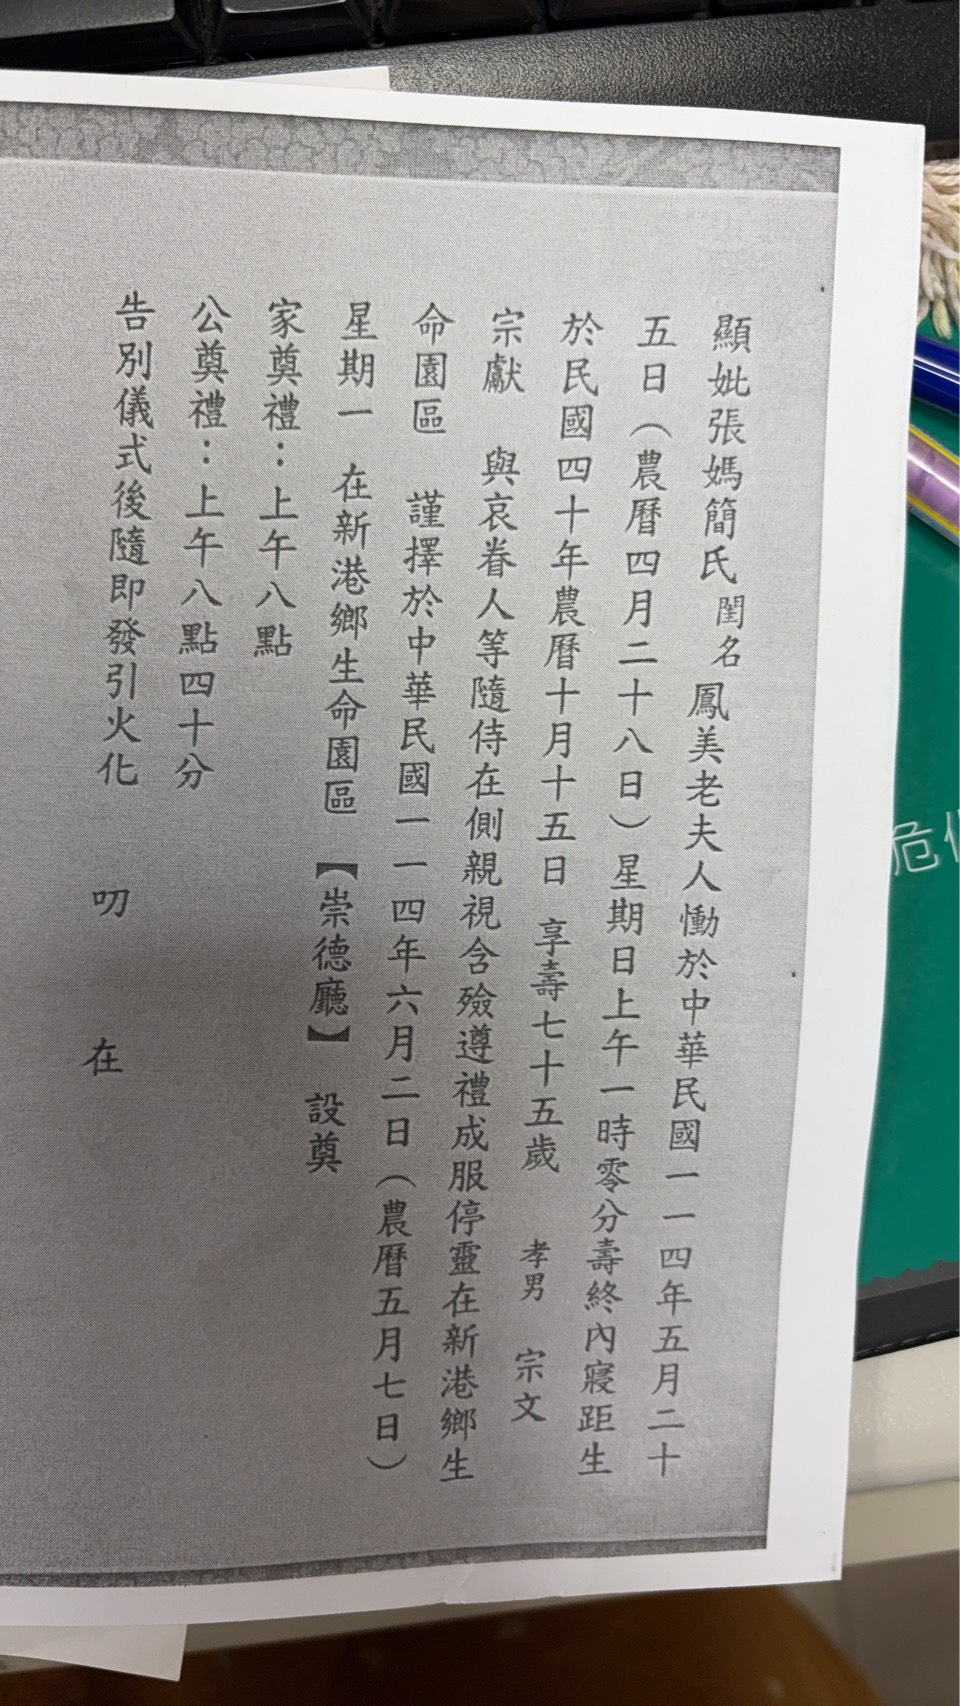 顯妣張媽簡氏閨名鳳美老夫人慟於中華民國一一四年五月二十
五日（農曆四月二十八日）星期日上午一時零分壽終內寢距生
於民國四十年農曆十月十五日　享壽七十五歲　孝男　宗文
宗獻　與哀眷人等隨侍在側親視含殮遵禮成服停靈在新港鄉生
命園區　謹擇於中華民國一一四年六月二日（農曆五月七日）
星期一　在新港鄉生命園區　【崇德廳】　設奠
家奠禮：上午八點
公奠禮：上午八點四十分
告別儀式後隨即發引火化　叨　在
危